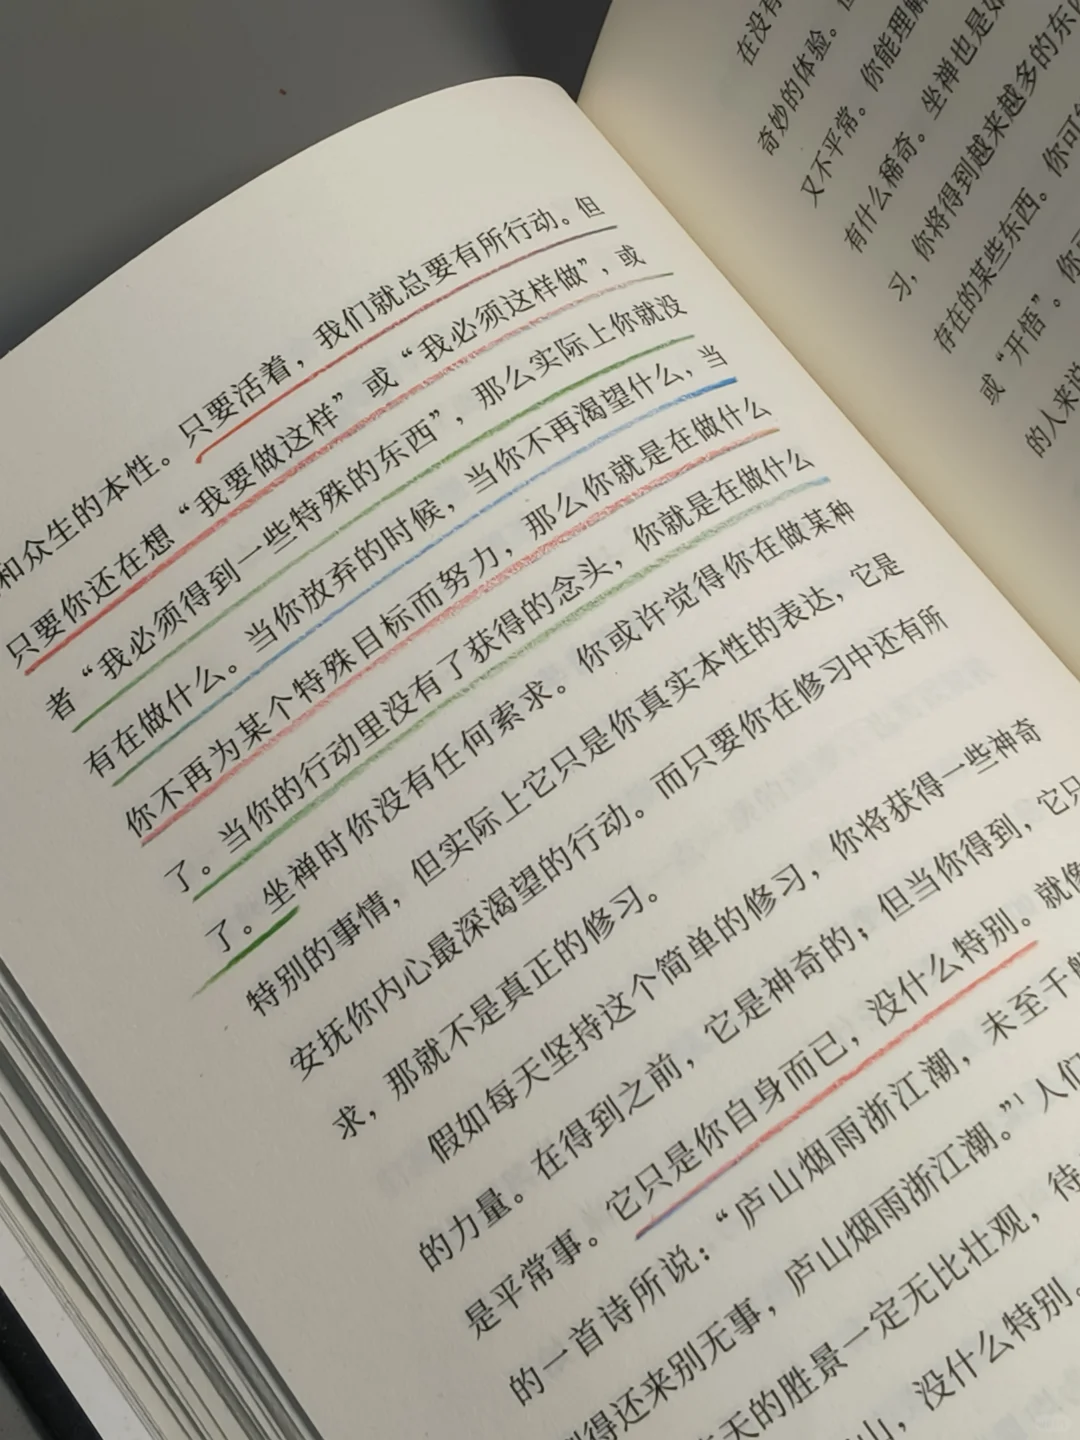 和众生的本性。只要活着，我们就总要有所行动。但
只要你还在想“我要做这样”或“我必须这样做”，或
者“我必须得到一些特殊的东西”，那么实际上你就没
有在做什么。当你放弃的时候，当你不再渴望什么，当
你不再为某个特殊目标而努力，那么你就是在做什么
了。当你的行动里没有了获得的念头，你就是在做什么
了。坐禅时你没有任何索求。你或许觉得你在做某种
特别的事情，但实际上它只是你真实本性的表达，它是
安抚你内心最深渴望的行动。而只要你在修习中还有所
求，那就不是真正的修习。
假如每天坚持这个简单的修习，你将获得一些神奇
的力量。在得到之前，它是神奇的；但当你得到，它只
是平常事。它只是你自身而已，没什么特别。就像
的一首诗所说：“庐山烟雨浙江潮，未至千般
得还来别无事，庐山烟雨浙江潮。”¹人们
天的胜景一定无比壮观，待
山，没什么特别。
在没有
奇妙的体验。但
又不平常。你能理解
有什么稀奇。坐禅也是如
习，你将得到越来越多的东西
存在的某些东西。你可能
或“开悟”。你可
的人来说